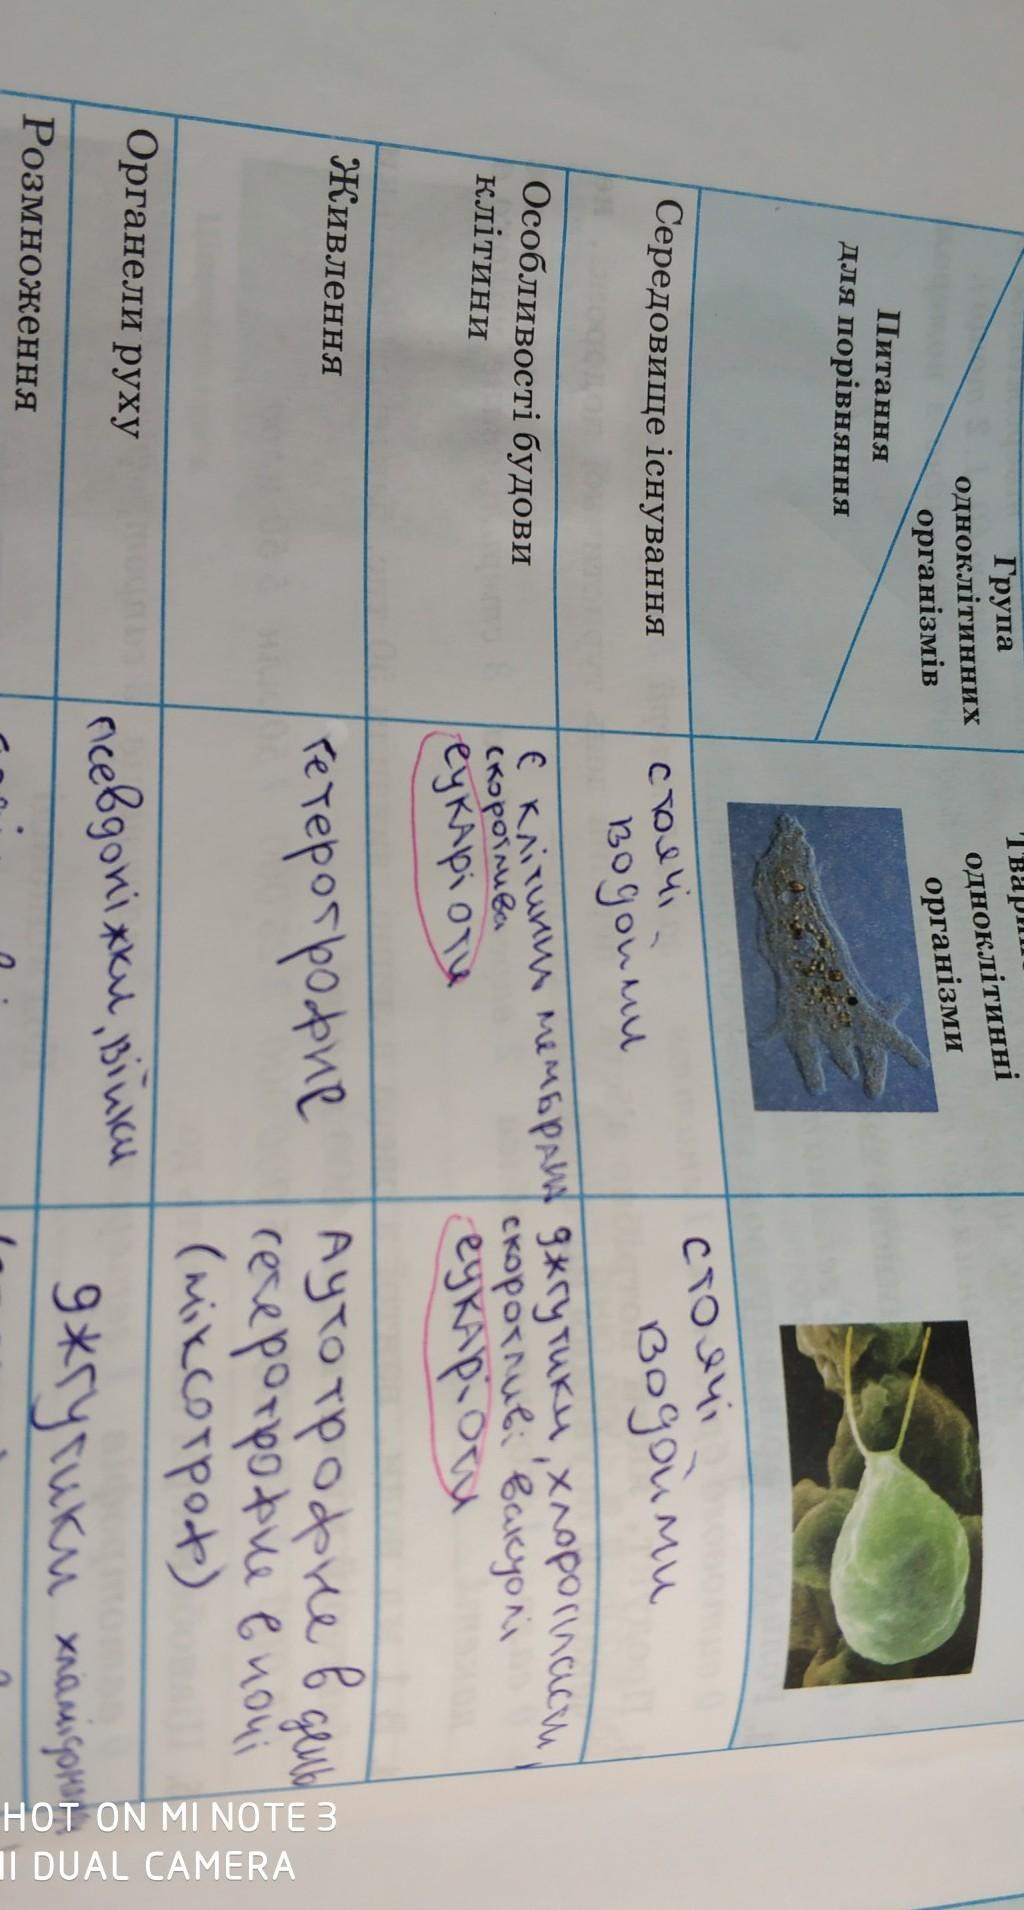 Група
одноклітинних
організмів
Питання
для порівняння
одноклітинні
організми
Середовище існування
стоячі
водойми
стоячі
водойми
Особливості будови
клітини
є клітинна мембрана
скоротлива
еукаріоти
джгутики, хлоропласти,
скоротливі вакуолі
еукаріоти
Живлення
гетеротрофне
Аутотрофне в день
гетеротрофне в ночі
(міксотроф)
Органели руху
псевдоніжки, війки
джгутики
Розмноження
SHOT ON MI NOTE 3
MI DUAL CAMERA